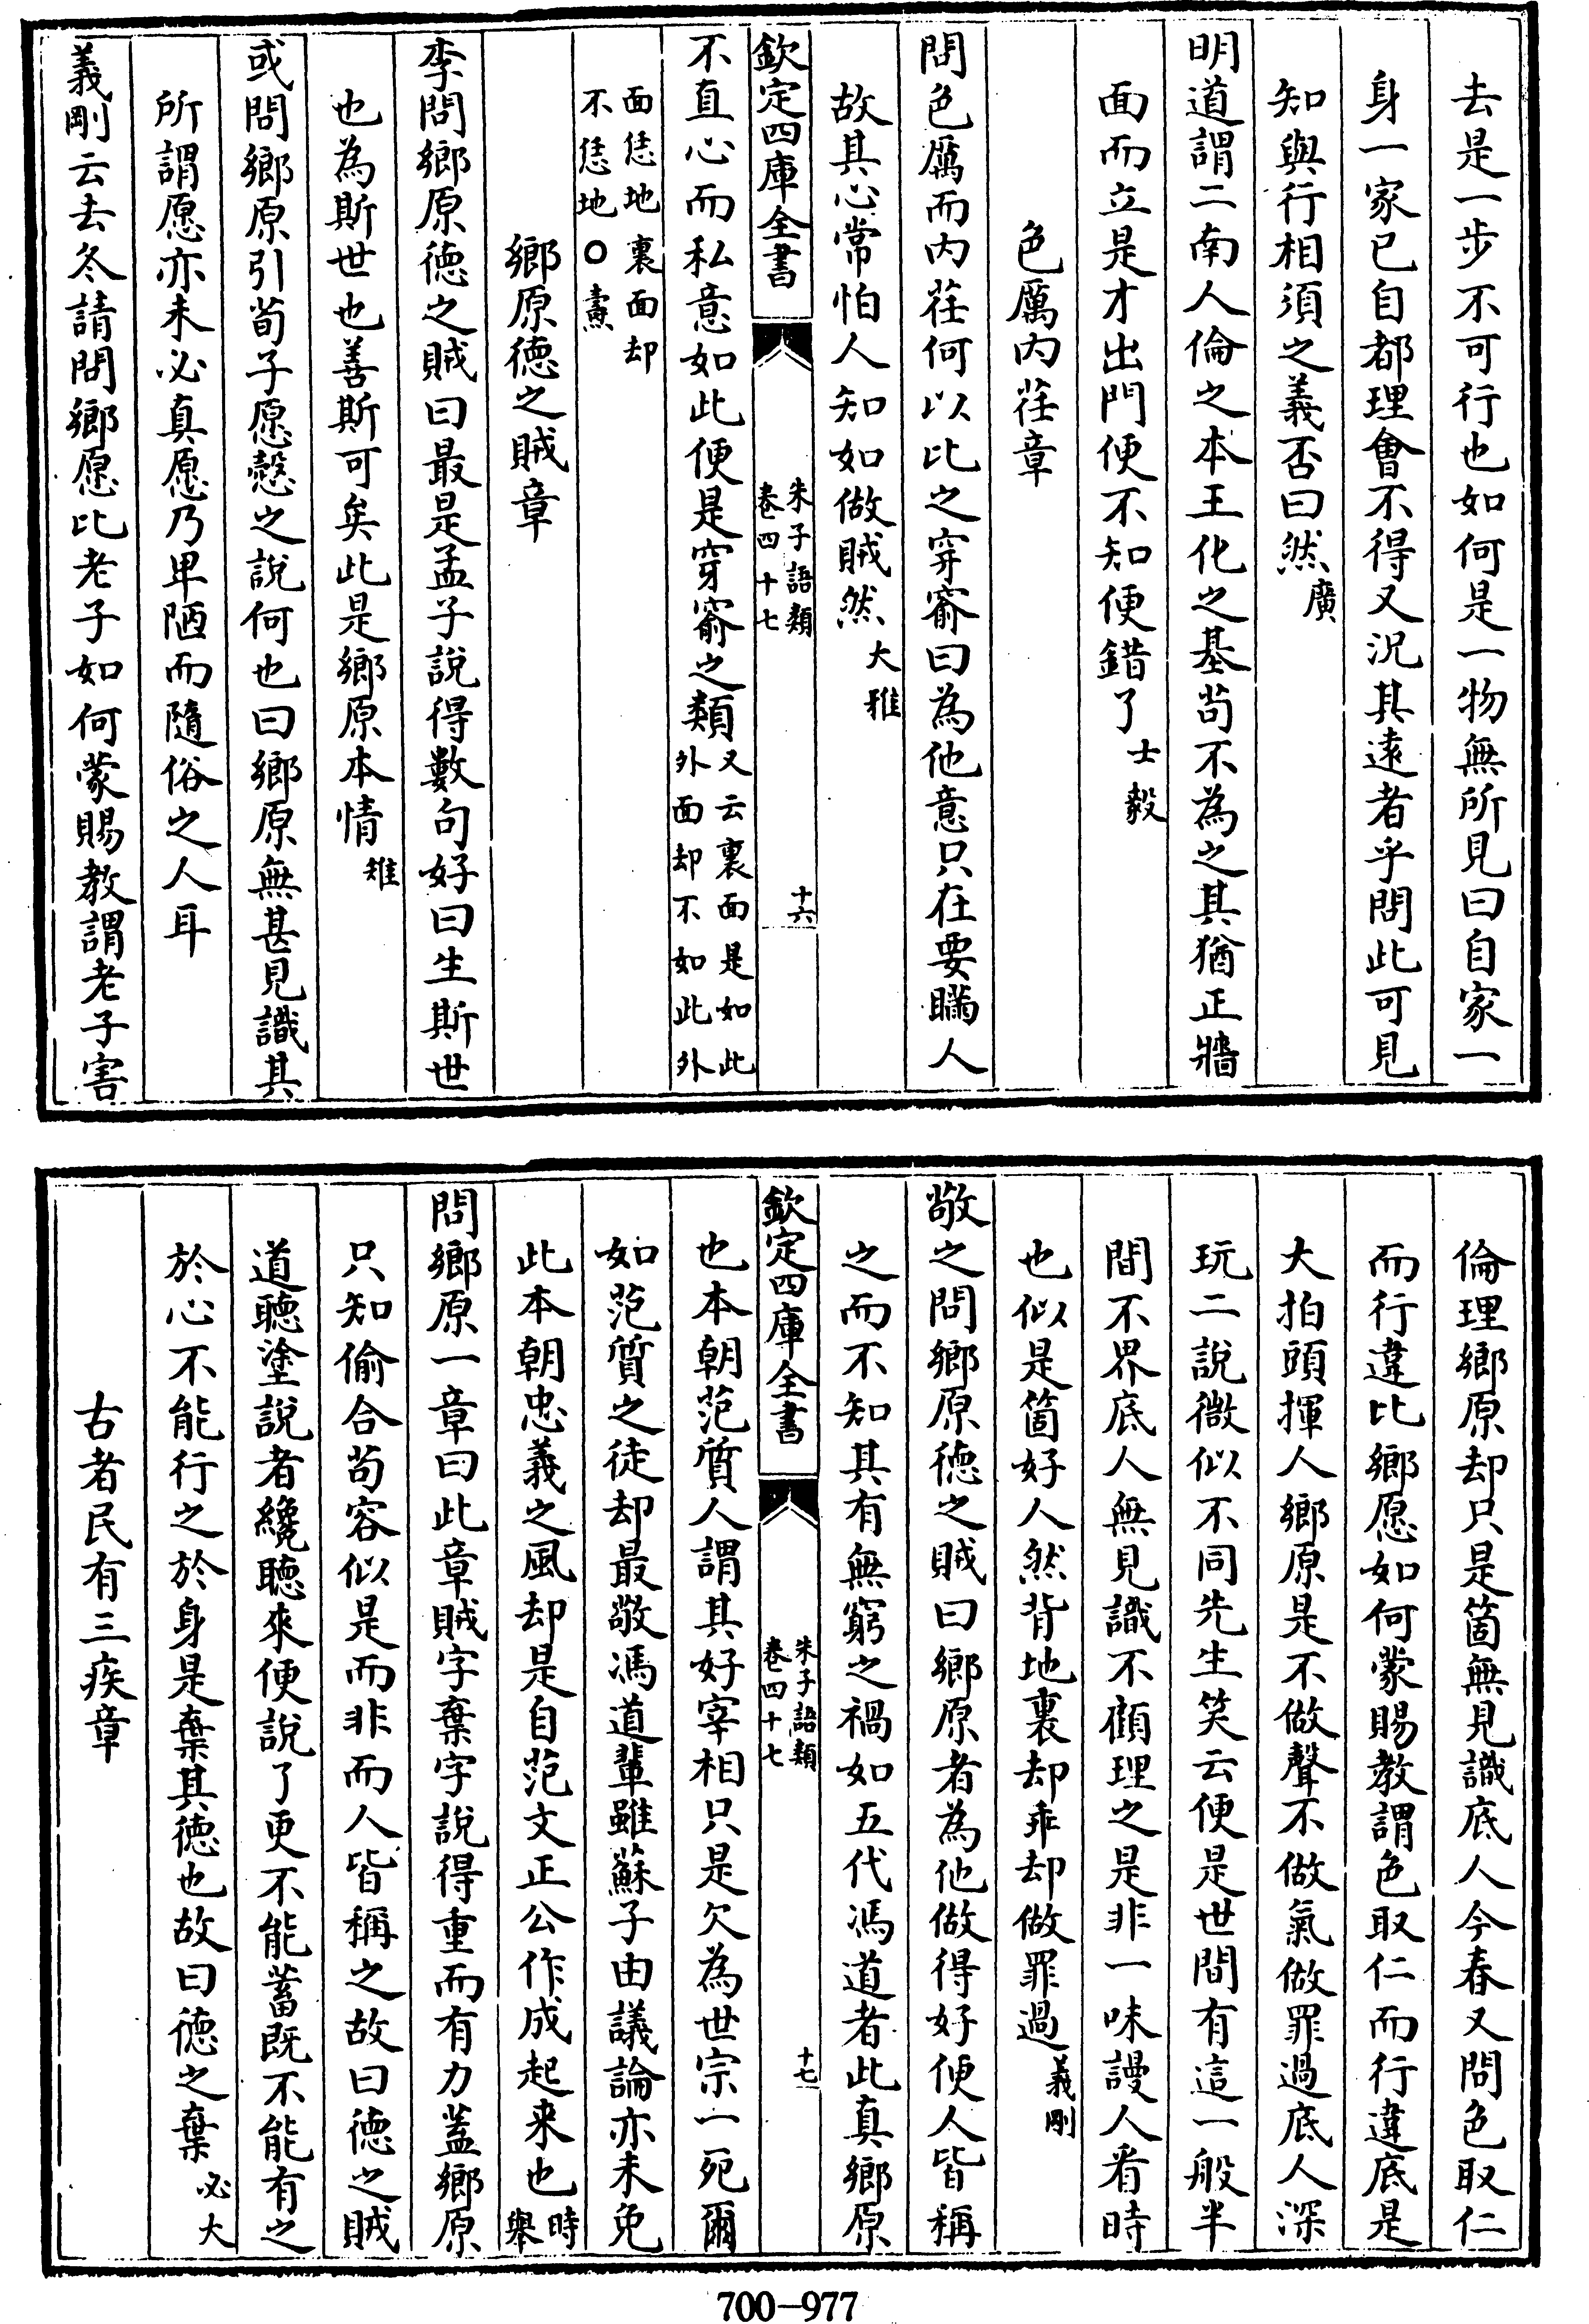 去是一步不可行也如何是一物無所見曰自家一
身一家已自都理會不得又況其遠者乎問此可見
知與行相須之義否曰然廣
明道謂二南人倫之本王化之基苟不為之其猶正牆
面而立是才出門便不知便錯了士毅
色厲内荏章
問色厲而内荏何以比之穿窬曰為他意只在要瞞人
故其心常怕人知如做賊然大雅
欽定四庫全書
朱子語類
卷四十七
十六
不直心而私意如此便是穿窬之類又云裏面是如此
外面却不如此外
面恁地裏面却
不恁地○燾
鄉原德之賊章
李問鄉原德之賊曰最是孟子說得數句好曰生斯世
也為斯世也善斯可矣此是鄉原本情雉
或問鄉原引荀子愿慤之說何也曰鄉原無甚見識其
所謂愿亦未必真愿乃卑陋而隨俗之人耳
義剛云去冬請問鄉愿比老子如何蒙賜教謂老子害
倫理鄉原却只是箇無見識底人今春又問色取仁
而行違比鄉愿如何蒙賜教謂色取仁而行違底是
大拍頭揮人鄉原是不做聲不做氣做罪過底人深
玩二說微似不同先生笑云便是世間有這一般半
間不界底人無見識不顧理之是非一味謾人看時
也似是箇好人然背地裏却乖却做罪過義剛
敬之問鄉原德之賊曰鄉原者為他做得好便人皆稱
之而不知其有無窮之禍如五代馮道者此真鄉原
欽定四庫全書
朱子語類
卷四十七
十七
也本朝范質人謂其好宰相只是欠為世宗一死爾
如范質之徒却最敬馮道輩雖蘇子由議論亦未免
此本朝忠義之風却是自范文正公作成起来也時
舉
問鄉原一章曰此章賊字棄字說得重而有力蓋鄉原
只知偷合苟容似是而非而人皆稱之故曰德之賊
道聽塗說者纔聽來便說了更不能蓄既不能有之
於心不能行之於身是棄其德也故曰德之棄必大
古者民有三疾章
700-977